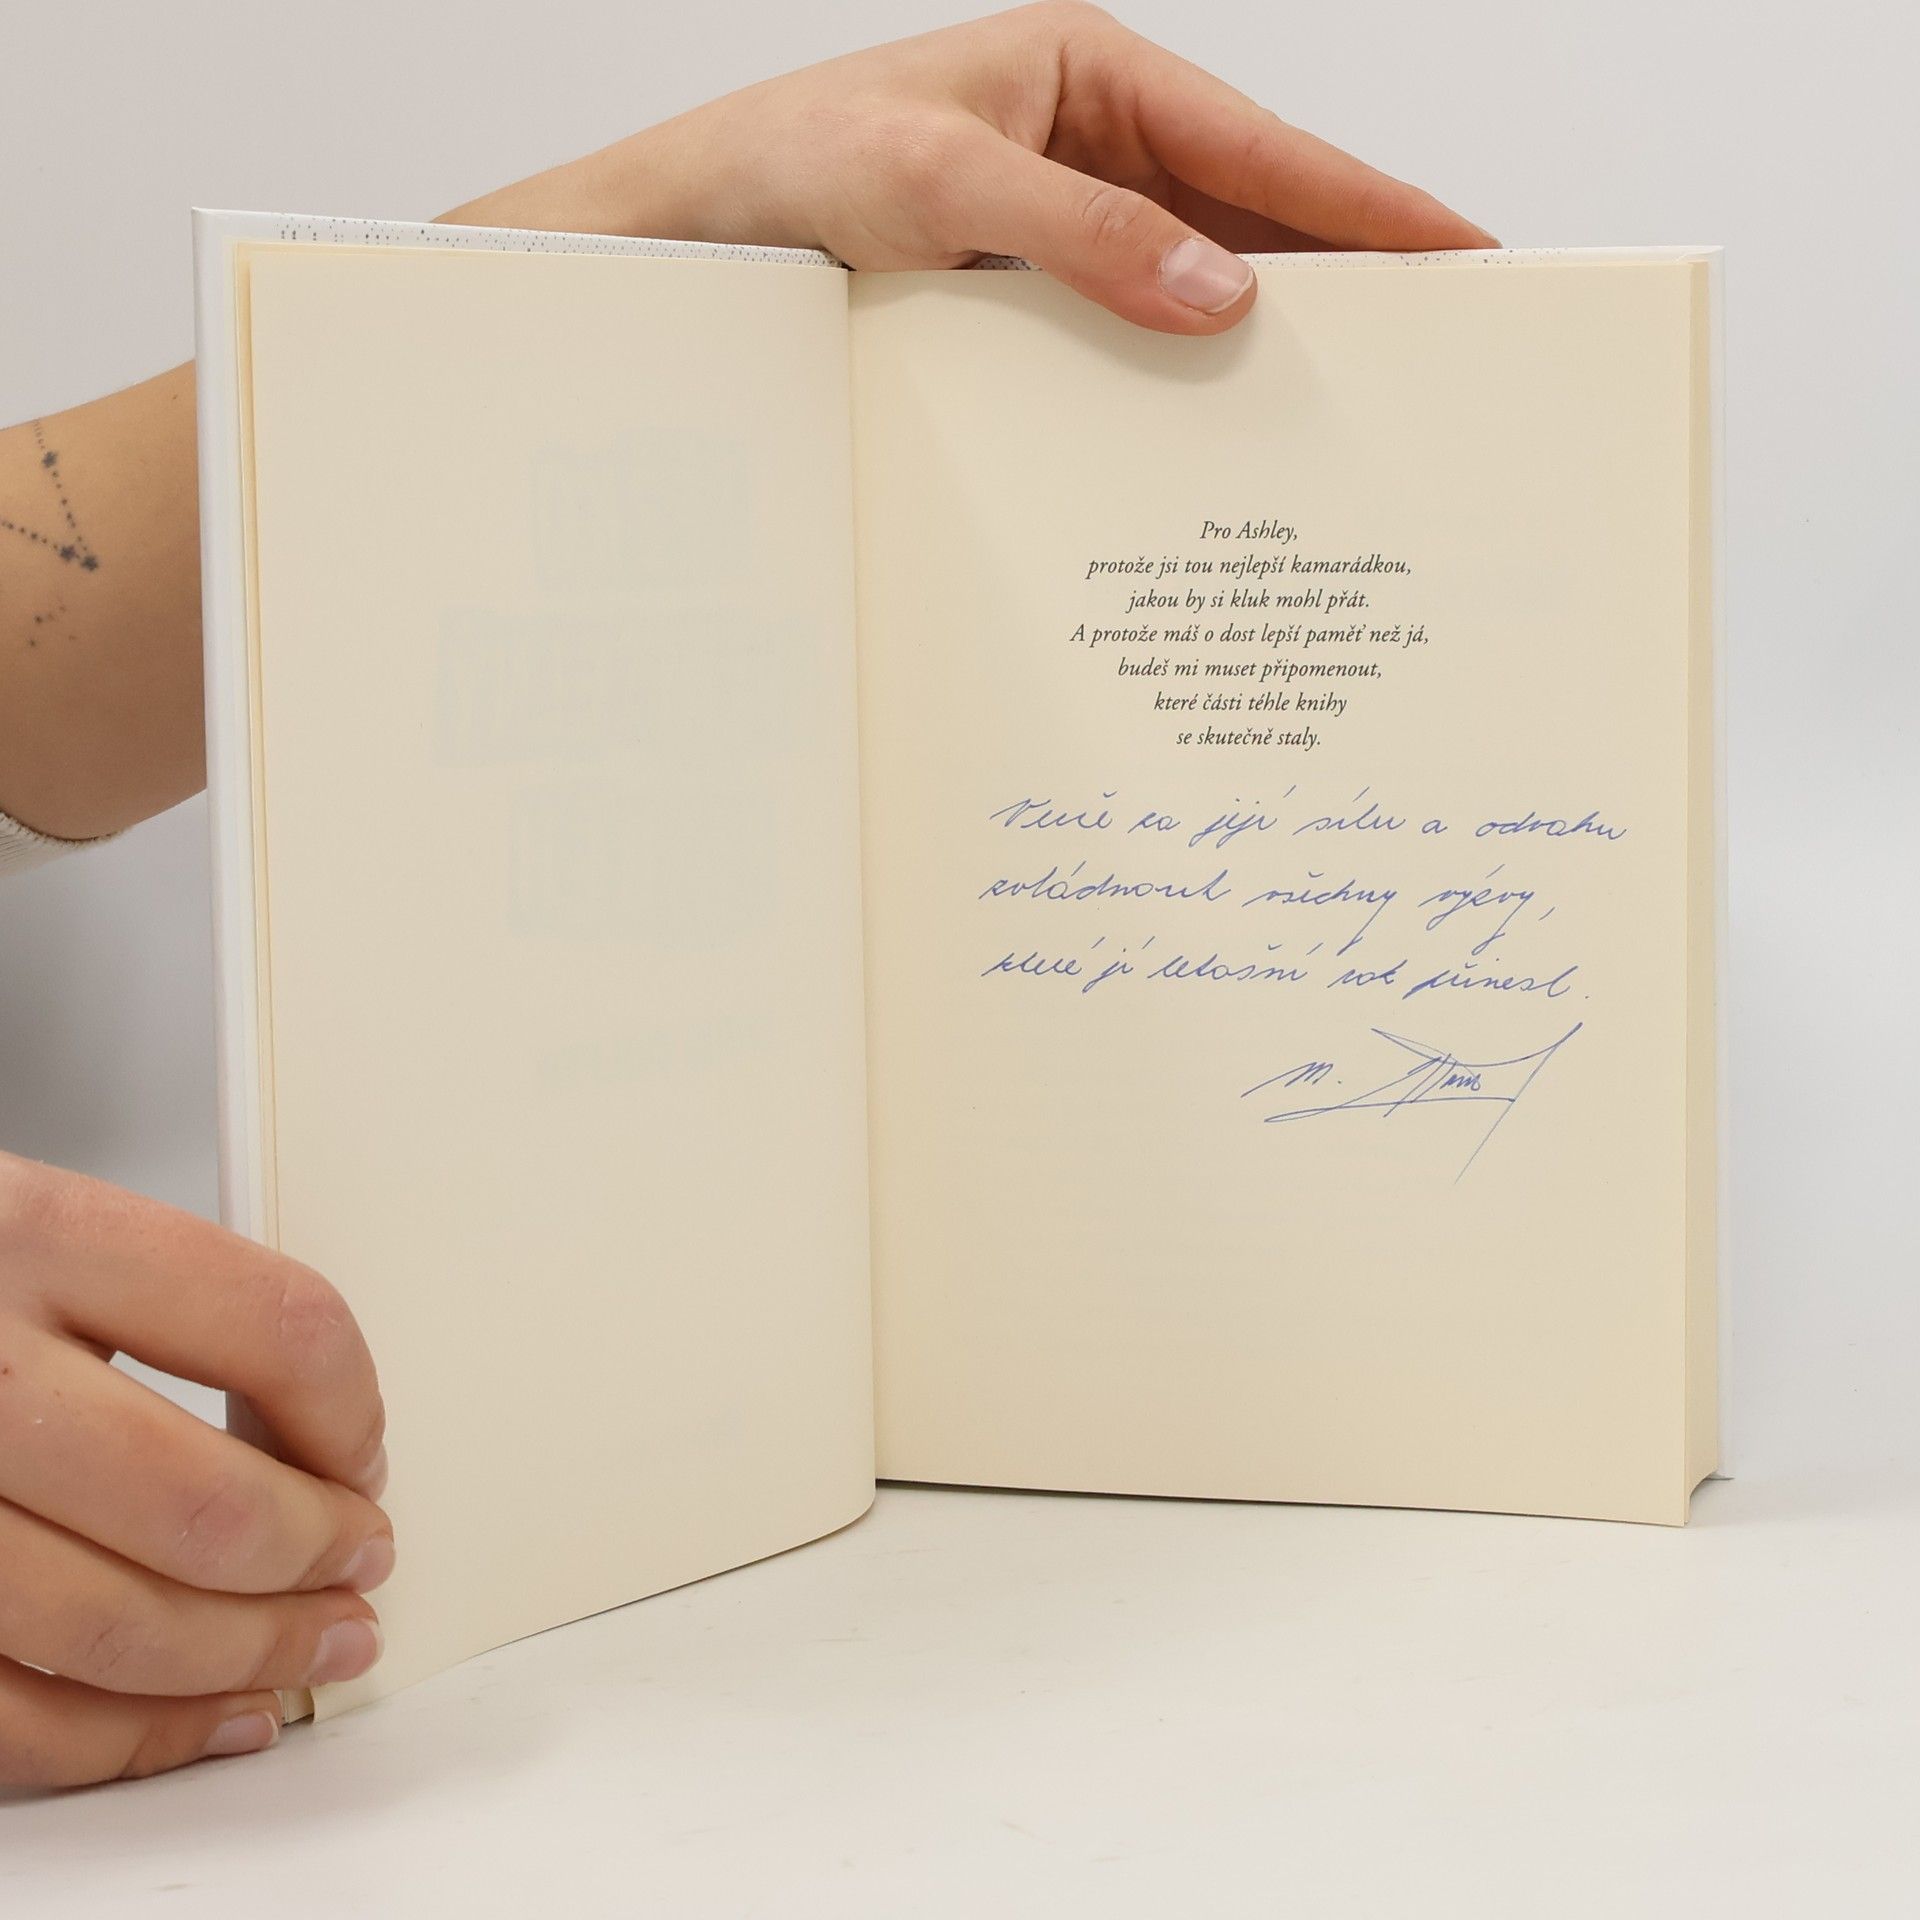 Pro Ashley,
protože jsi tou nejlepší kamarádkou,
jakou by si kluk mohl přát.
A protože máš o dost lepší paměť než já,
budeš mi muset připomenout,
které části téhle knihy
se skutečně staly.
za její sílu a odvahu
zvládnout všechny výzvy,
které jí letošní rok přinesl.
M.